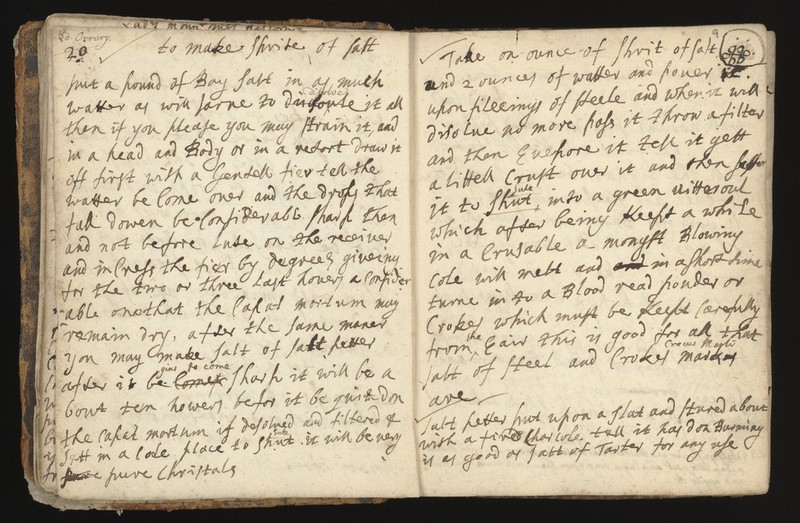 Lo: Orrery
20
to make Sprite of Salt
put a pound of Bay Salt in as much
watter as will sarve to disolve it all
then if you please you may strain it, and
in a head and Body or in a retort draw it
off first with a Gentell fier tell the
watter be Come over and the drops that
fall dowen be Considerable Sharp then
and not before lute on the receiver
and in Cress the fier by degrees giveing
for the two or three last howers a Consider
able one that the Capat mortum may
remain dry, after the same maner
you may make Salt of Salt petter
after it be gins to come Sharp it will be a
bout ten howers befor it be quit don
the Capat mortum if desolved and filtered &
Sett in a Cole place to Shut it will be very
puure Christals
Take on ounce of Sprit of Salt
and 2 ounces of watter and power it
upon fileings of steele and when it will
disolve no more pass it throw a filter
and then Evepore it tell it gett
a littell Crust over it and then Suffer
it to Shut into a green vitteroul
which after being keept a while
in a Crusable a mongst Blowing
Cole will melt and in a Short time
turne in to a Blood read pouder or
Crokes which must be keept Carefully
from the Eair this is good for all that
Crocus Martis
Salt of Steel and Crokes markes
are
Salt petter put upon a Slat and Stured about
with a fired Charcole tell it has don Burning
is as good as Salt of Tarter for any use